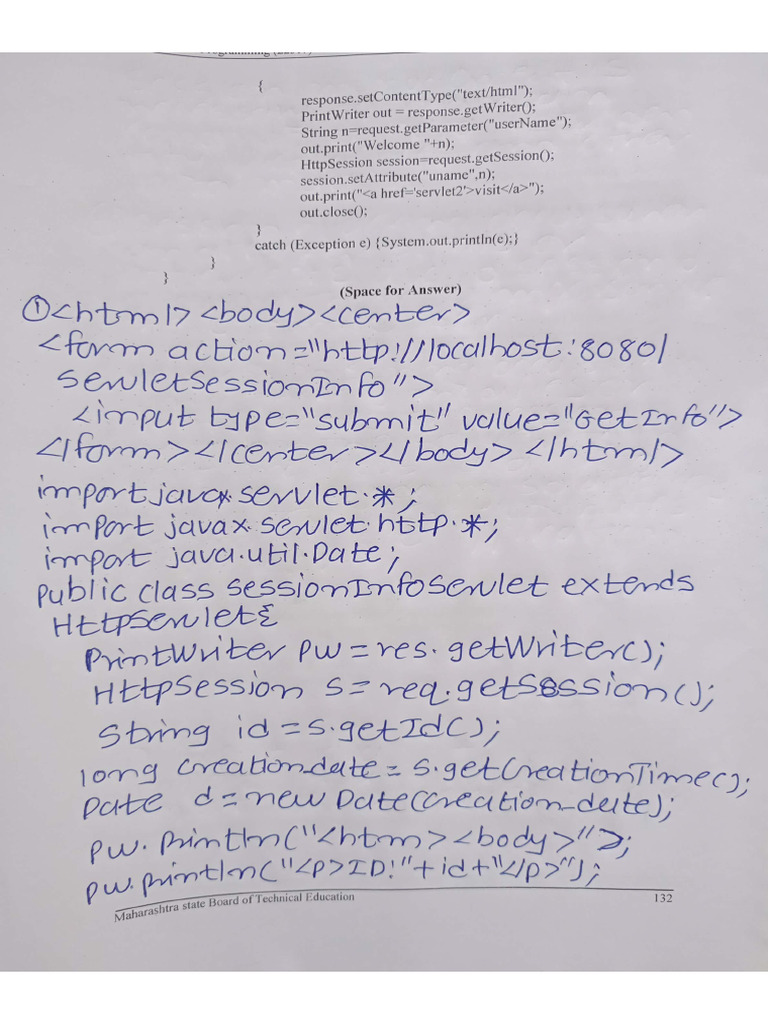 {
response.setContentType("text/html");
PrintWriter out = response.getWriter();
String n=request.getParameter("userName");
out.print("Welcome "+n);
HttpSession session=request.getSession();
session.setAttribute("uname",n);
out.print("<a href='servlet2'>visit</a>");
out.close();
}
catch (Exception e) {System.out.println(e);}
}
}
(Space for Answer)
① <html> <body> <center>
<form action="http://localhost:8080/
ServletSessionInfo">
<input type="submit" value="GetInfo">
</form></center></body></html>
import javax.servlet.*;
import javax.servlet.http.*;
import java.util.Date;
public class SessionInfoServlet extends
HttpServlet{
PrintWriter pw = res.getWriter();
HttpSession s = req.getSession();
String id = s.getId();
long creation_date = s.getCreationTime();
Date d = new Date(creation_date);
pw.println("<htm><body>">;
pw.println("<p>ID!"+id+"</p>");
Maharashtra state Board of Technical Education 132